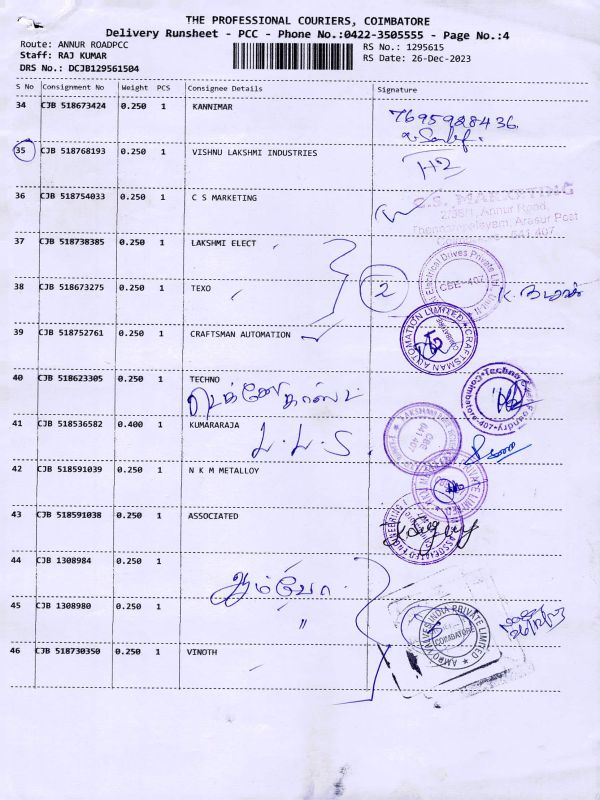 THE PROFESSIONAL COURIERS, COIMBATORE
Delivery Runsheet - PCC - Phone No.:0422-3505555 - Page No.:4
Route: ANNUR ROADPCC
RS No.: 1295615
Staff: RAJ KUMAR
RS Date: 26-Dec-2023
DRS No.: DCJB129561504
S No Consignment No Weight PCS Consignee Details Signature
34 CJB 518673424 0.250 1 KANNIMAR
7695928436
35 CJB 518768193 0.250 1 VISHNU LAKSHMI INDUSTRIES
36 CJB 518754033 0.250 1 C S MARKETING
C.S. MARKETING
Annur Road,
Arasur Post
641 407
37 CJB 518738385 0.250 1 LAKSHMI ELECT
38 CJB 518673275 0.250 1 TEXO
2
Electrical Drives Private Ltd
CBE-407
39 CJB 518752761 0.250 1 CRAFTSMAN AUTOMATION
CRAFTSMAN AUTOMATION LIMITED
40 CJB 518623305 0.250 1 TECHNO
டெக்னோ
41 CJB 518536582 0.400 1 KUMARARAJA
L.L.S.
42 CJB 518591039 0.250 1 N K M METALLOY
43 CJB 518591038 0.250 1 ASSOCIATED
44 CJB 1308984 0.250 1
ஆம்வோ
45 CJB 1308980 0.250 1
"
46 CJB 518730350 0.250 1 VINOTH
AMPO VALVES INDIA PRIVATE LIMITED
COIMBATORE